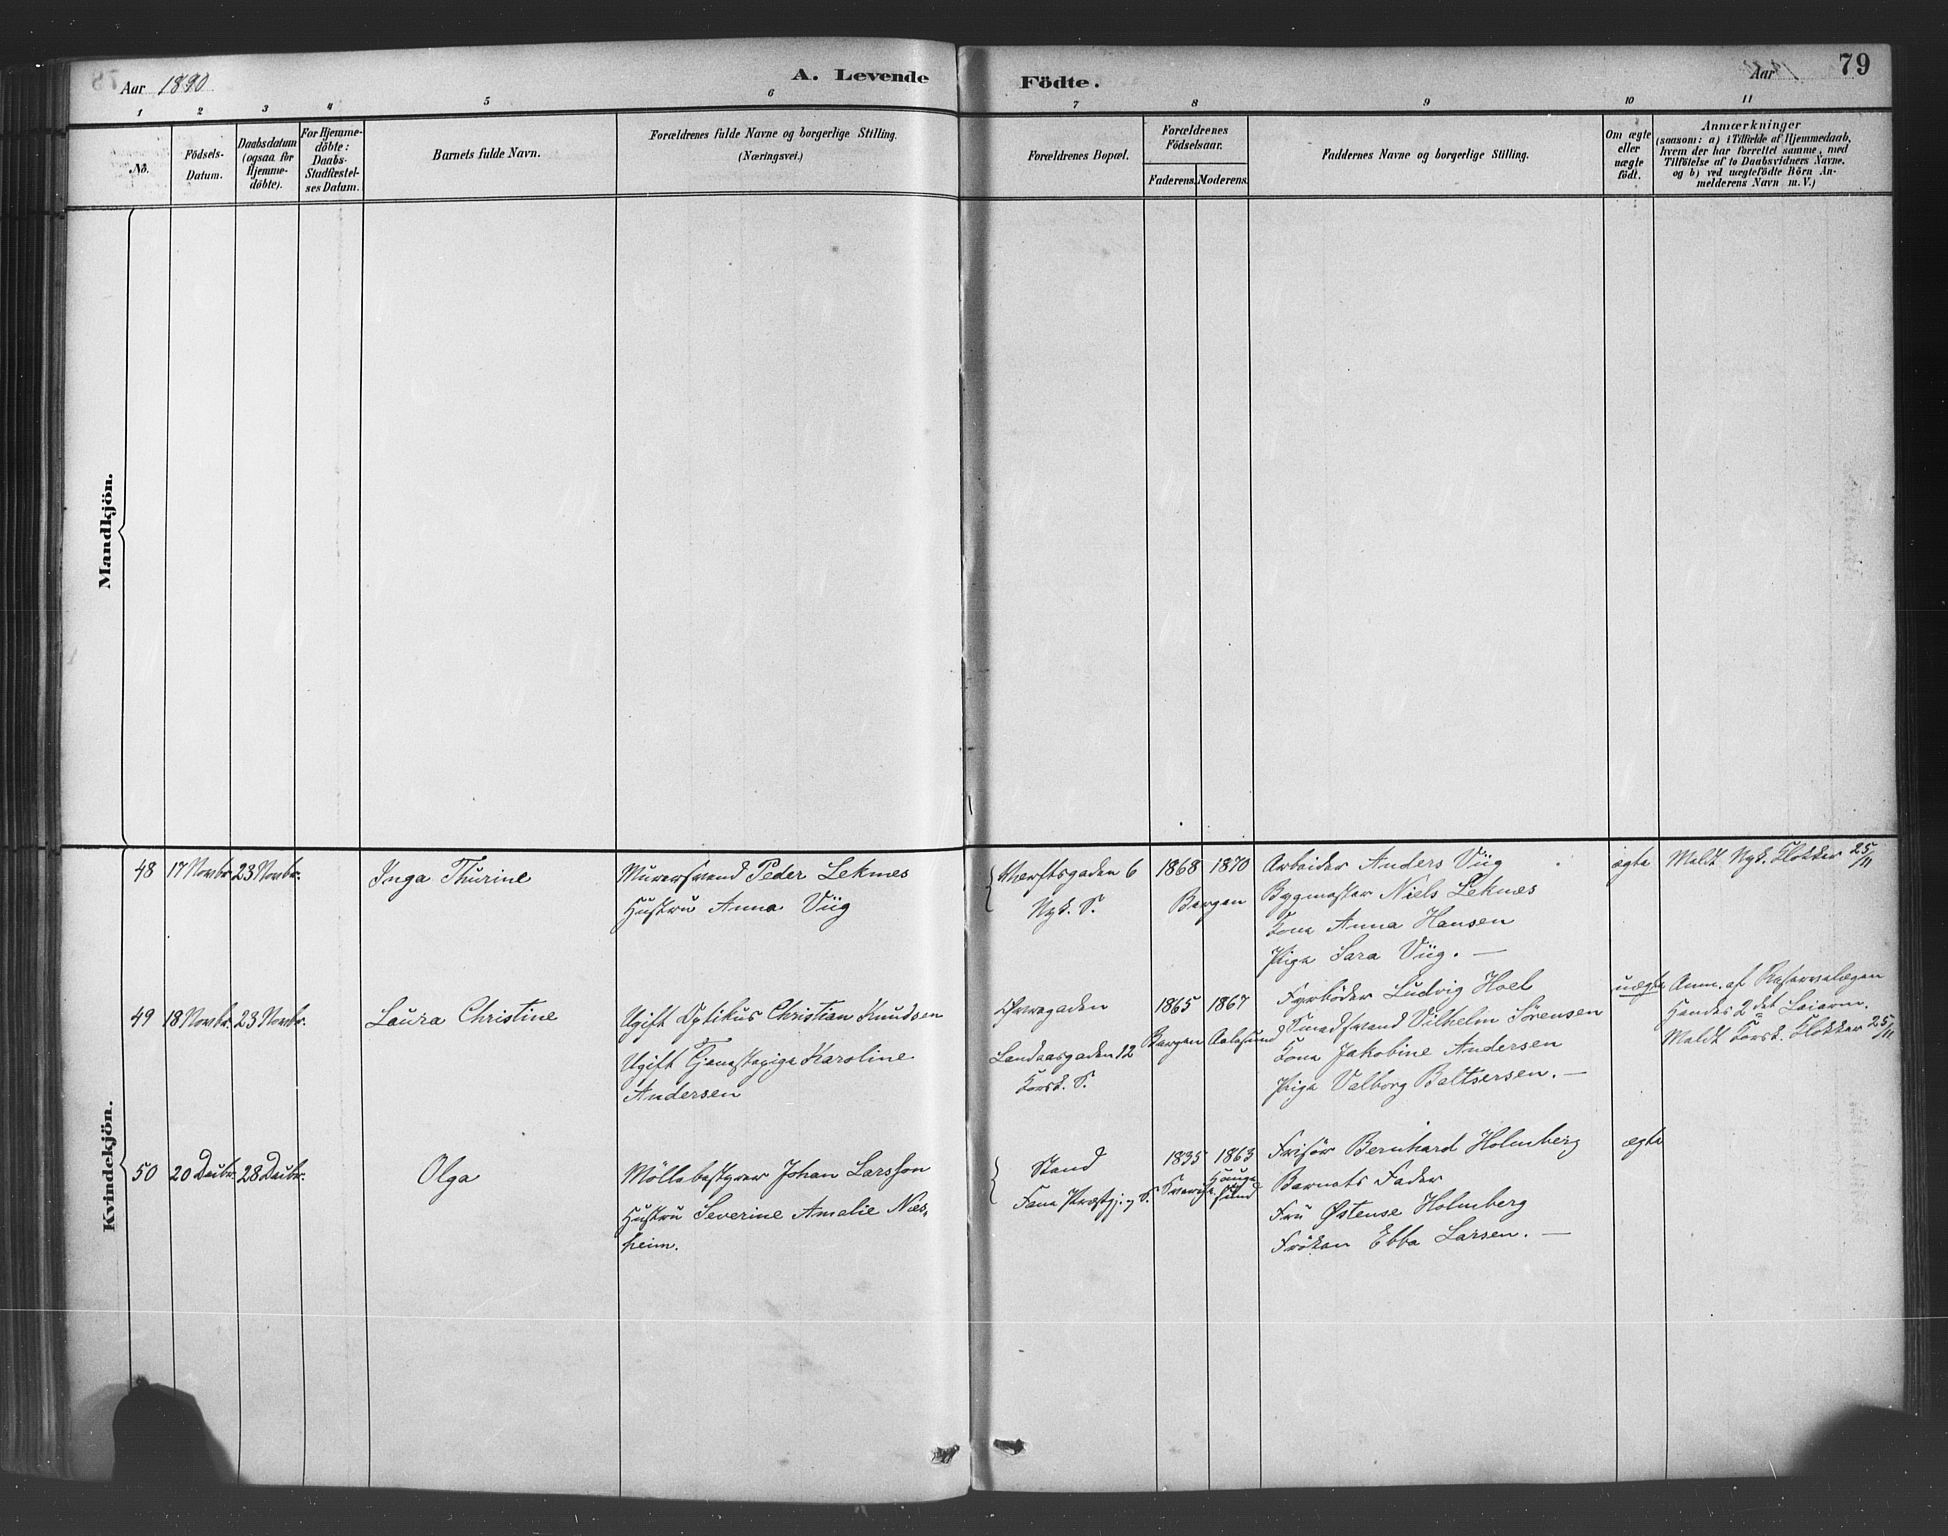 Aar 1890
A. Levende
Födte.
Aar
79
1 2 3 4 5 6 7 8 9 10 11
No.
Födsels-
Datum.
Daabsdatum
(ogsaa for
Hjemme-
döbte).
For Hjemme-
döbte:
Daabs-
Stadfæstel-
ses Datum.
Barnets fulde Navn.
Forældrenes fulde Navne og borgerlige Stilling.
(Næringsvei.)
Forældrenes Bopæl.
Forældrenes
Födselsaar.
Faderens.
Moderens.
Faddernes Navne og borgerlige Stilling.
Om ægte
eller
uægte
födt.
Anmærkninger
(saasom: a) i Tilfælde af Hjemmedaab,
hvem der har forrettet samme, med
Tilföielse af to Daabsvidners Navne.
og b) ved uægtefödte Börn An-
melderens Navn m. V.)
Mandkjön.
Kvindekjön.
48
17 Novbr.
23 Novbr.
Inga Thurine
Murersvend Peder Lekmes
Hustru Anna Viig
Werftsgaden 6
Nyk. S.
1868
1870
Bergen
Arbeider Anders Viig
Bygmester Niels Lekmes
Kone Anna Hansen
Pige Sara Viig. —
ægte
Meldt Nyk. Klokker 25/11
49
18 Novbr.
23 Novbr.
Laura Christine
Ugift Optikus Christian Knudsen
Ugift Tjenestepige Karoline
Andersen
Øvregaden
Landaasgaden 12
Korsk. S.
1865
1867
Bergen
Aalesund
Fyrböder Ludvig Hoel
Smedsvend Vilhelm Sörensen
Kone Jakobine Andersen
Pige Valborg Baltsersen. —
uægte
Anm. af Reservelægen
Hendes 2det Leierm.
Meldt Korsk. Klokker 25/11
50
20 Decbr.
28 Decbr.
Olga
Möllebestyrer Johan Larsson
Hustru Severine Amalie Næs-
heim.
Stend
Fane Præstgj.
1835
1863
Sverige
Hauge
sund
Frisör Bernhard Holmberg
Barnets Fader
Fru Østense Holmberg
Fröken Ebba Larsen. —
ægte